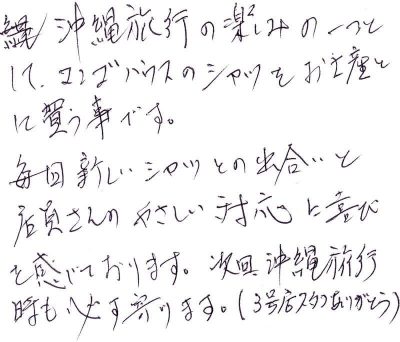 沖縄旅行の楽しみの一つと
して、マンゴハウスのシャツをお土産と
に買う事です。
毎回新しいシャツとの出合いと
店員さんのやさしい対応に喜び
を感じております。次回沖縄旅行
時も必ず寄ります。(3号店スタッフありがとう)